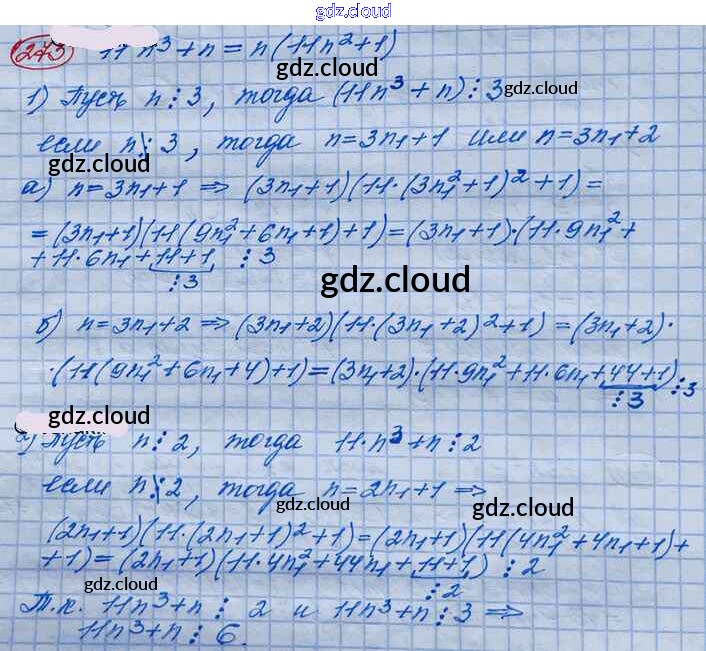 gdz.cloud
273 11n³+n = n(11n²+1)
gdz.cloud
1) Пусть n⋮3, тогда (11n³+n)⋮3 gdz.cloud
если n⋮̸3, тогда n=3n₁+1 или n=3n₁+2
gdz.cloud gdz.cloud
а) n=3n₁+1 ⇒ (3n₁+1)(11·(3n₁²+1)²+1)=
=(3n₁+1)(11(9n₁²+6n₁+1)+1)=(3n₁+1)·(11·9n₁²+
+11·6n₁+11+1) ⋮3
⋮3
gdz.cloud
б) n=3n₁+2 ⇒ (3n₁+2)(11·(3n₁+2)²+1)=(3n₁+2)·
·(11(9n₁²+6n₁+4)+1)=(3n₁+2)·(11·9n₁²+11·6n₁+44+1)⋮3
⋮3
gdz.cloud gdz.cloud
2) Пусть n⋮2, тогда 11·n³+n⋮2
если n⋮̸2, тогда n=2n₁+1 ⇒
gdz.cloud gdz.cloud
(2n₁+1)(11·(2n₁+1)²+1)=(2n₁+1)(11(4n₁²+4n₁+1)+
+1)=(2n₁+1)(11·4n₁²+44n₁+11+1) ⋮2
gdz.cloud ⋮2
Т.к. 11n³+n⋮2 и 11n³+n⋮3 ⇒
gdz.cloud
11n³+n⋮6.